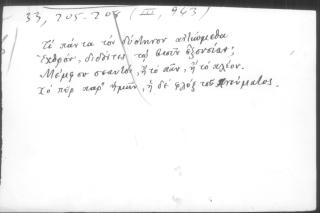 33, 205-208 (III, 963)
Τί πάντα τὸν δύστηνον αἰτιώμεθα
Ἐχθρὸν, διδόντες τῷ βιοῦν ἐξουσίαν;
Μέμφου σεαυτὸν, ἢ τὸ πᾶν, ἢ τὸ πλέον.
Τὸ πῦρ παρ' ἡμῶν, ἡ δὲ φλὸξ τοῦ πνεύματος.